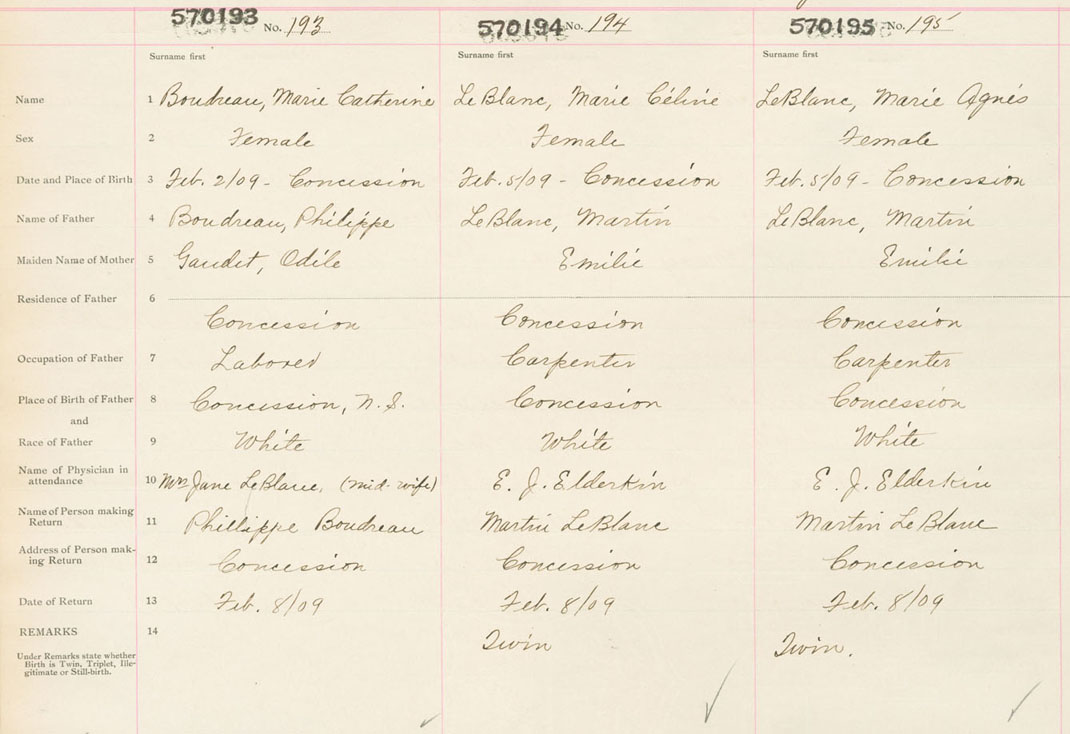 570193 No. 193 570194 No. 194 570195 No. 195
Surname first Surname first Surname first
Name 1 Boudreau, Marie Catherine LeBlanc, Marie Céline LeBlanc, Marie Agnés
Sex 2 Female Female Female
Date and Place of Birth 3 Feb. 2/09 - Concession Feb. 5/09 - Concession Feb. 5/09 - Concession
Name of Father 4 Boudreau, Philippe LeBlanc, Martin LeBlanc, Martin
Maiden Name of Mother 5 Gaudet, Odile Emilie Emilie
Residence of Father 6
Concession Concession Concession
Occupation of Father 7 Laborer Carpenter Carpenter
Place of Birth of Father 8 Concession, N.S. Concession Concession
and
Race of Father 9 White White White
Name of Physician in
attendance 10 Mrs Jane LeBlanc, (mid-wife) E. J. Elderkin E. J. Elderkin
Name of Person making
Return 11 Phillippe Boudreau Martin LeBlanc Martin LeBlanc
Address of Person mak-
ing Return 12 Concession Concession Concession
Date of Return 13 Feb. 8/09 Feb. 8/09 Feb. 8/09
REMARKS 14
Twin Twin.
Under Remarks state whether
Birth is Twin, Triplet, Ille-
gitimate or Still-birth.